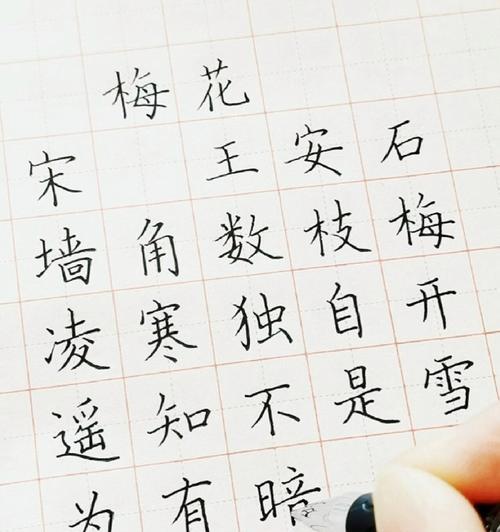 梅花
宋 王安石
墙角数枝梅
凌寒独自开
遥知不是雪
为有暗